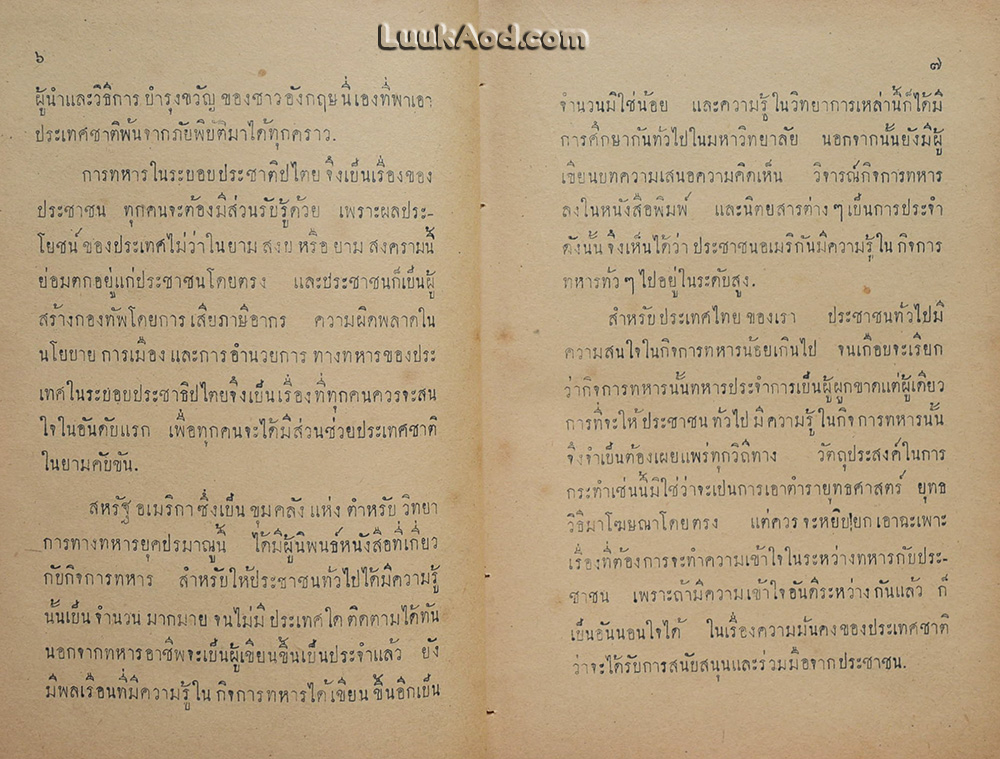 LuukAod.com
๖
ผู้นำและวิธีการ บำรุงขวัญ ของชาวอังกฤษนี่เองที่พาเอา
ประเทศชาติพ้นจากภัยพิบัติมาได้ทุกคราว.
การทหารในระบอบประชาติปไตย จึงเป็นเรื่องของ
ประชาชน ทุกคนจะต้องมีส่วนรับรู้ด้วย เพราะผลประ-
โยชน์ของประเทศไม่ว่าในยาม สงบ หรือ ยาม สงครามนี้
ย่อมตกอยู่แก่ประชาชนโดยตรง และประชาชนก็เป็นผู้
สร้างกองทัพโดยการ เสียภาษีอากร ความผิดพลาดใน
นโยบาย การเมือง และการ อำนวยการ ทางทหารของประ
เทศในระบอบประชาธิปไตยจึงเป็นเรื่องที่ทุกคนควรจะสน
ใจในอันดับแรก เพื่อทุกคนจะได้มีส่วนช่วยประเทศชาติ
ในยามคับขัน.
สหรัฐ อเมริกา ซึ่งเป็น ขุมคลัง แห่ง ตำหรับ วิทยา
การทางทหารยุคปรมาณูนี้ ได้มีผู้นิพนธ์หนังสือที่เกี่ยว
กับกิจการทหาร สำหรับให้ประชาชนทั่วไปได้มีความรู้
นั้นเป็น จำนวน มากมาย จนไม่มี ประเทศใด ติดตามได้ทัน
นอกจากทหารอาชีพจะเป็นผู้เขียนขึ้นเป็นประจำแล้ว ยัง
มีพลเรือนที่มีความรู้ใน กิจการทหารได้เขียน ขึ้นอีกเป็น
๗
จำนวนมิใช่น้อย และความรู้ในวิทยาการเหล่านี้ก็ได้มี
การศึกษากันทั่วไปในมหาวิทยาลัย นอกจากนั้นยังมีผู้
เขียนบทความเสนอความคิดเห็น วิจารณ์กิจการทหาร
ลงในหนังสือพิมพ์ และนิตยสารต่างๆเป็นการประจำ
ดังนั้น จึงเห็นได้ว่า ประชาชนอเมริกันมีความรู้ใน กิจการ
ทหารทั่วๆไปอยู่ในระดับสูง.
สำหรับประเทศไทย ของเรา ประชาชนทั่วไปมี
ความสนใจในกิจการทหารน้อยเกินไป จนเกือบจะเรียก
ว่ากิจการทหารนั้นทหารประจำการเป็นผู้ผูกขาดแต่ผู้เดียว
การที่จะให้ ประชาชน ทั่วไป มีความรู้ในกิจ การทหารนั้น
จึงจำเป็นต้องเผยแพร่ทุกวิถีทาง วัตถุประสงค์ในการ
กระทำเช่นนี้มิใช่ว่าจะเป็นการเอาตำรายุทธศาสตร์ ยุทธ
วิธีมาโฆษณาโดยตรง แต่ควร จะหยิบยก เอาฉะเพาะ
เรื่องที่ต้องการจะทำความเข้าใจในระหว่างทหารกับประ-
ชาชน เพราะถ้ามีความเข้าใจ อันดีระหว่าง กันแล้ว ก็
เป็นอันนอนใจได้ ในเรื่องความมั่นคงของประเทศชาติ
ว่าจะได้รับการสนับสนุนและร่วมมือจากประชาชน.